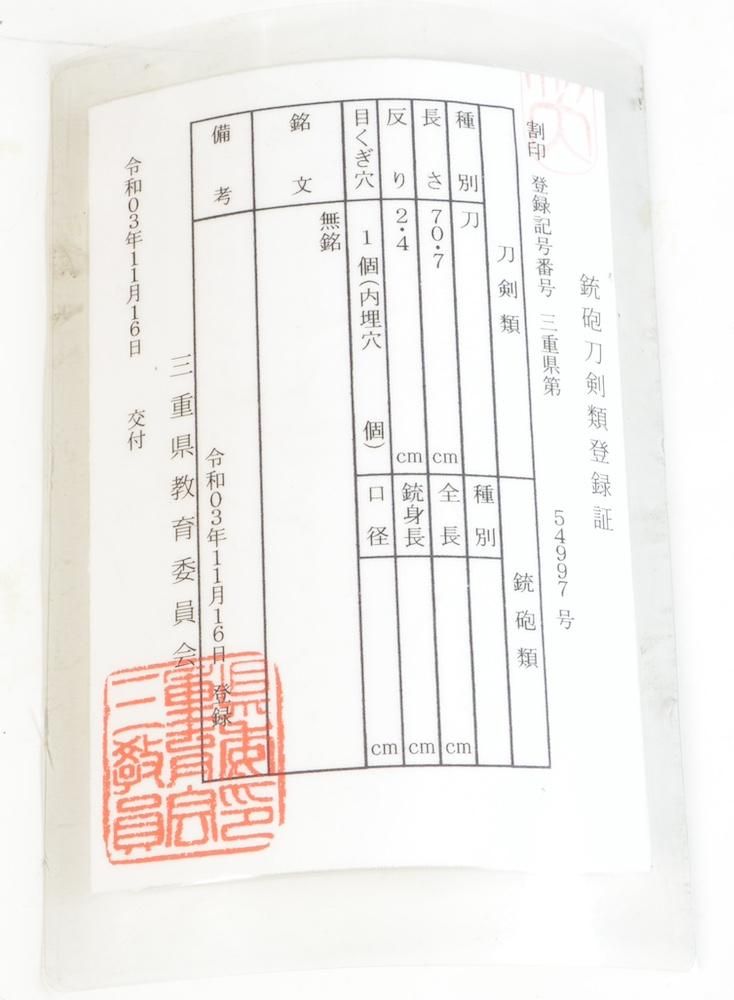 銃砲刀剣類登録証
割印 登録記号番号 三重県第 54997 号
刀剣類
銃砲類
種別 刀
長さ 70.7 cm
反り 2.4 cm
目くぎ穴 1個(内埋穴 個)
種別
全長 cm
銃身長 cm
口径 cm
銘文 無銘
備考 令和03年11月16日 登録
三重県教育委員会
令和03年11月16日 交付